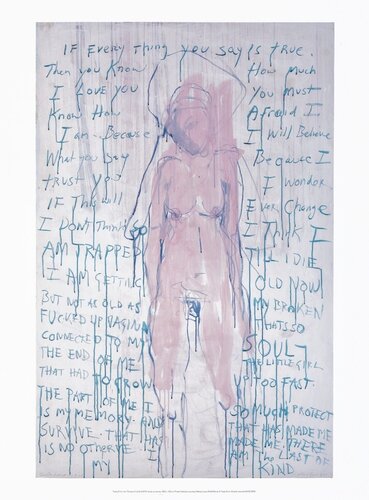 IF EVERy Thing you SAy IS TRUE.
Then you KNOW How Much
I LOVE YOU You MusT
KNow How Afraid I
I am Because I Will Believe
What you Say Because I
TRUST you? I Wonder
IF This will Ever Change
I DON'T Think SO I Think I
AM TRAPPED TILL I DIE
I AM GETTING OLD NOW
BUT NOT AS OLD AS MY BROKEN
FUCKED UP VAGINA THATS SO
CONNECTED TO MY SOUL
THE END OF ME THE LITTLE GIRL
THAT HAD TO GROW UP TOO FAST.
THE PART OF ME I SO MUCH PROTECT
IS MY MEMORY. AND THAT HAS MADE ME
SURVIVE. THAT HAS MADE ME. THERE
IS NO OTHERVE I AM THE LAST OF
MY KIND